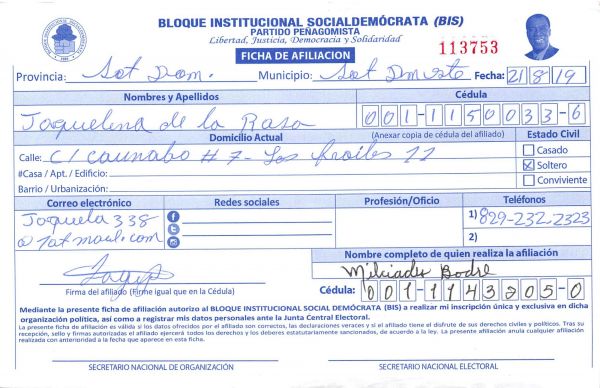 BLOQUE INSTITUCIONAL SOCIALDEMÓCRATA (BIS)
PARTIDO PEÑAGOMISTA
Libertad, Justicia, Democracia y Solidaridad
FICHA DE AFILIACION
113753
Provincia: Sat Dom. Municipio: Sat Dm este Fecha: 21/8/19
Nombres y Apellidos
Cédula
Jaquelina de la Rosa
001-1150033-6
Domicilio Actual
(Anexar copia de cédula del afiliado)
Estado Civil
Calle: C/ caunabo # 7- Los frailes 11
Casado
#Casa / Apt. / Edificio:
Soltero
Barrio / Urbanización:
Conviviente
Correo electrónico
Redes sociales
Profesión/Oficio
Teléfonos
Jaquela 338
1) 829-232-2323
2)
Nombre completo de quien realiza la afiliación
Milciades
Firma del afiliado (Firme igual que en la Cédula)
Cédula: 001-1143205-0
Mediante la presente ficha de afiliación autorizo al BLOQUE INSTITUCIONAL SOCIAL DEMÓCRATA (BIS) a realizar mi inscripción única y exclusiva en dicha
organización política, así como a registrar mis datos personales ante la Junta Central Electoral.
La presente ficha de afiliación es válida si los datos ofrecidos por el afiliado son correctos, las declaraciones veraces y si el afiliado tiene el disfrute de sus derechos civiles y políticos. Tras su
recepción, sello y firmas autorizadas el afiliado ejercerá todos los derechos y los deberes estatutariamente sancionados, de acuerdo a la ley. La presente afiliación anula cualquier afiliación
realizada con anterioridad a la fecha que aparece en esta ficha.
SECRETARIO NACIONAL DE ORGANIZACIÓN
SECRETARIO NACIONAL ELECTORAL